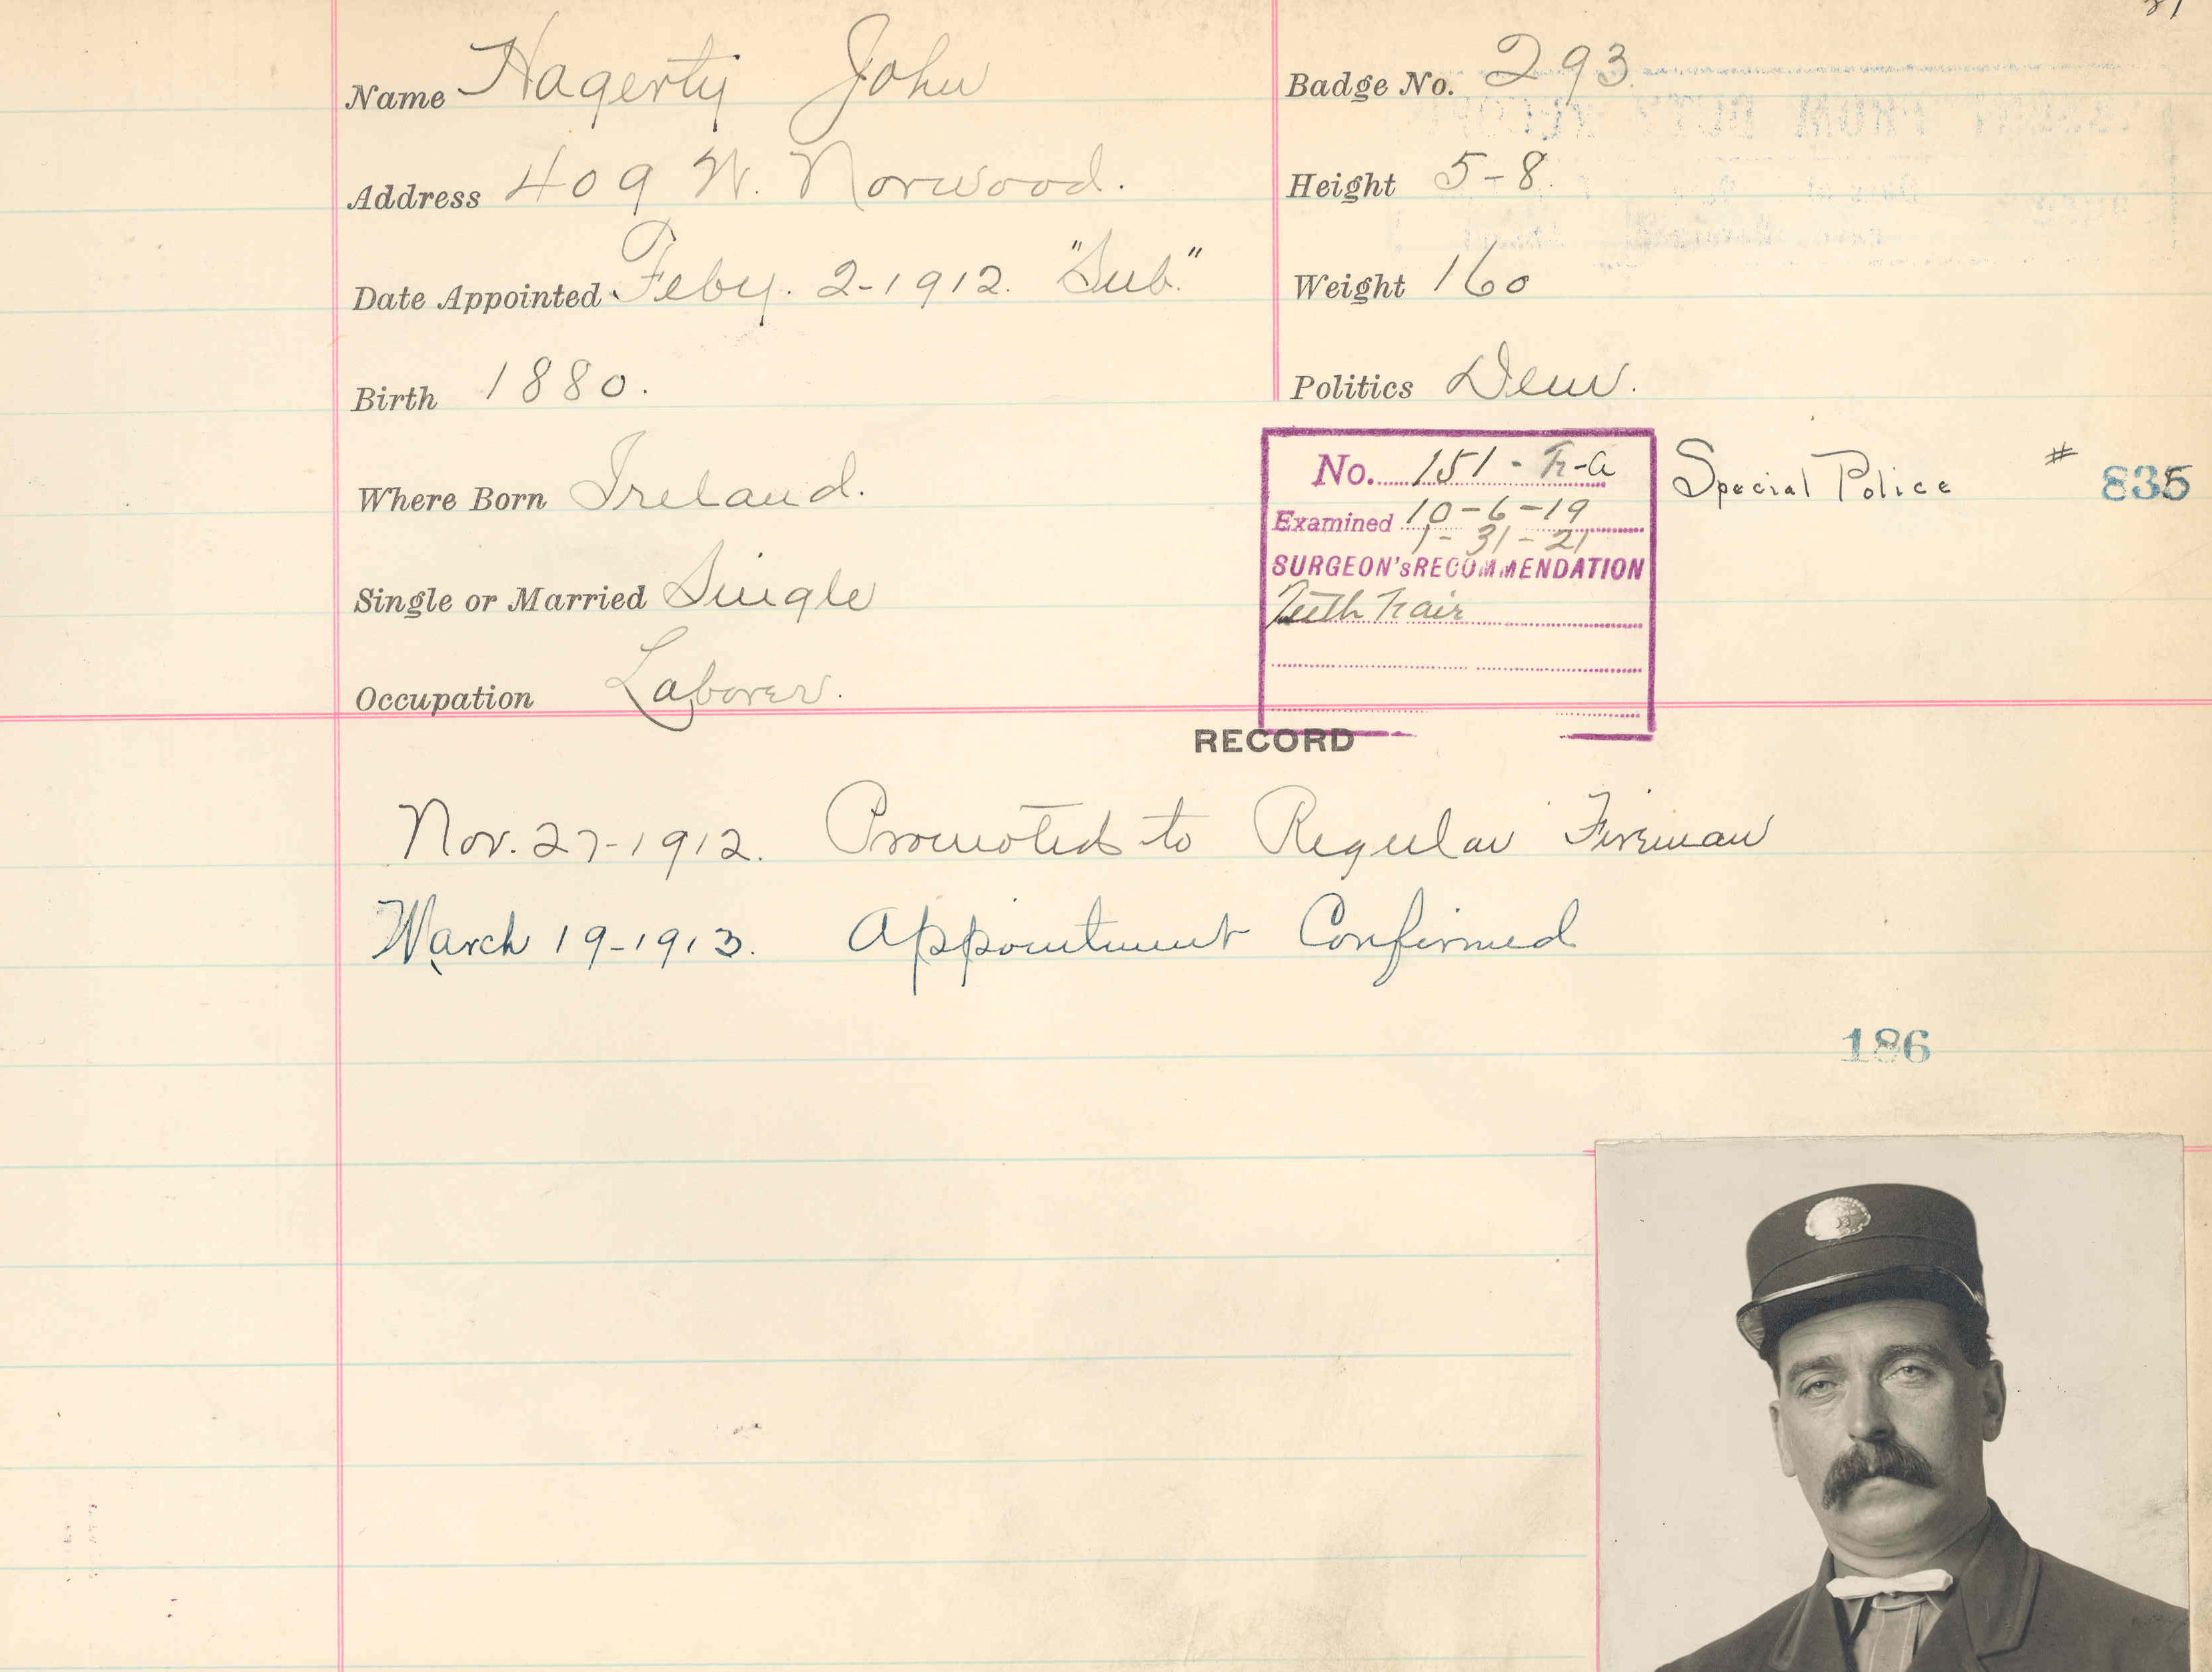 Name Hagerty John
Badge No. 293.
Address 409 W. Norwood.
Height 5-8.
Date Appointed Feby. 2-1912. "Sub."
Weight 160
Birth 1880.
Politics Dem.
Where Born Ireland.
No. 151 - Fr-a
Special Police # 835
Examined 10-6-19
1-31-21
SURGEON'S RECOMMENDATION
Single or Married Single
Teeth Fair
Occupation Laborer.
RECORD
Nov. 27-1912. Promoted to Regular Fireman
March 19-1913. Appointment Confirmed
186